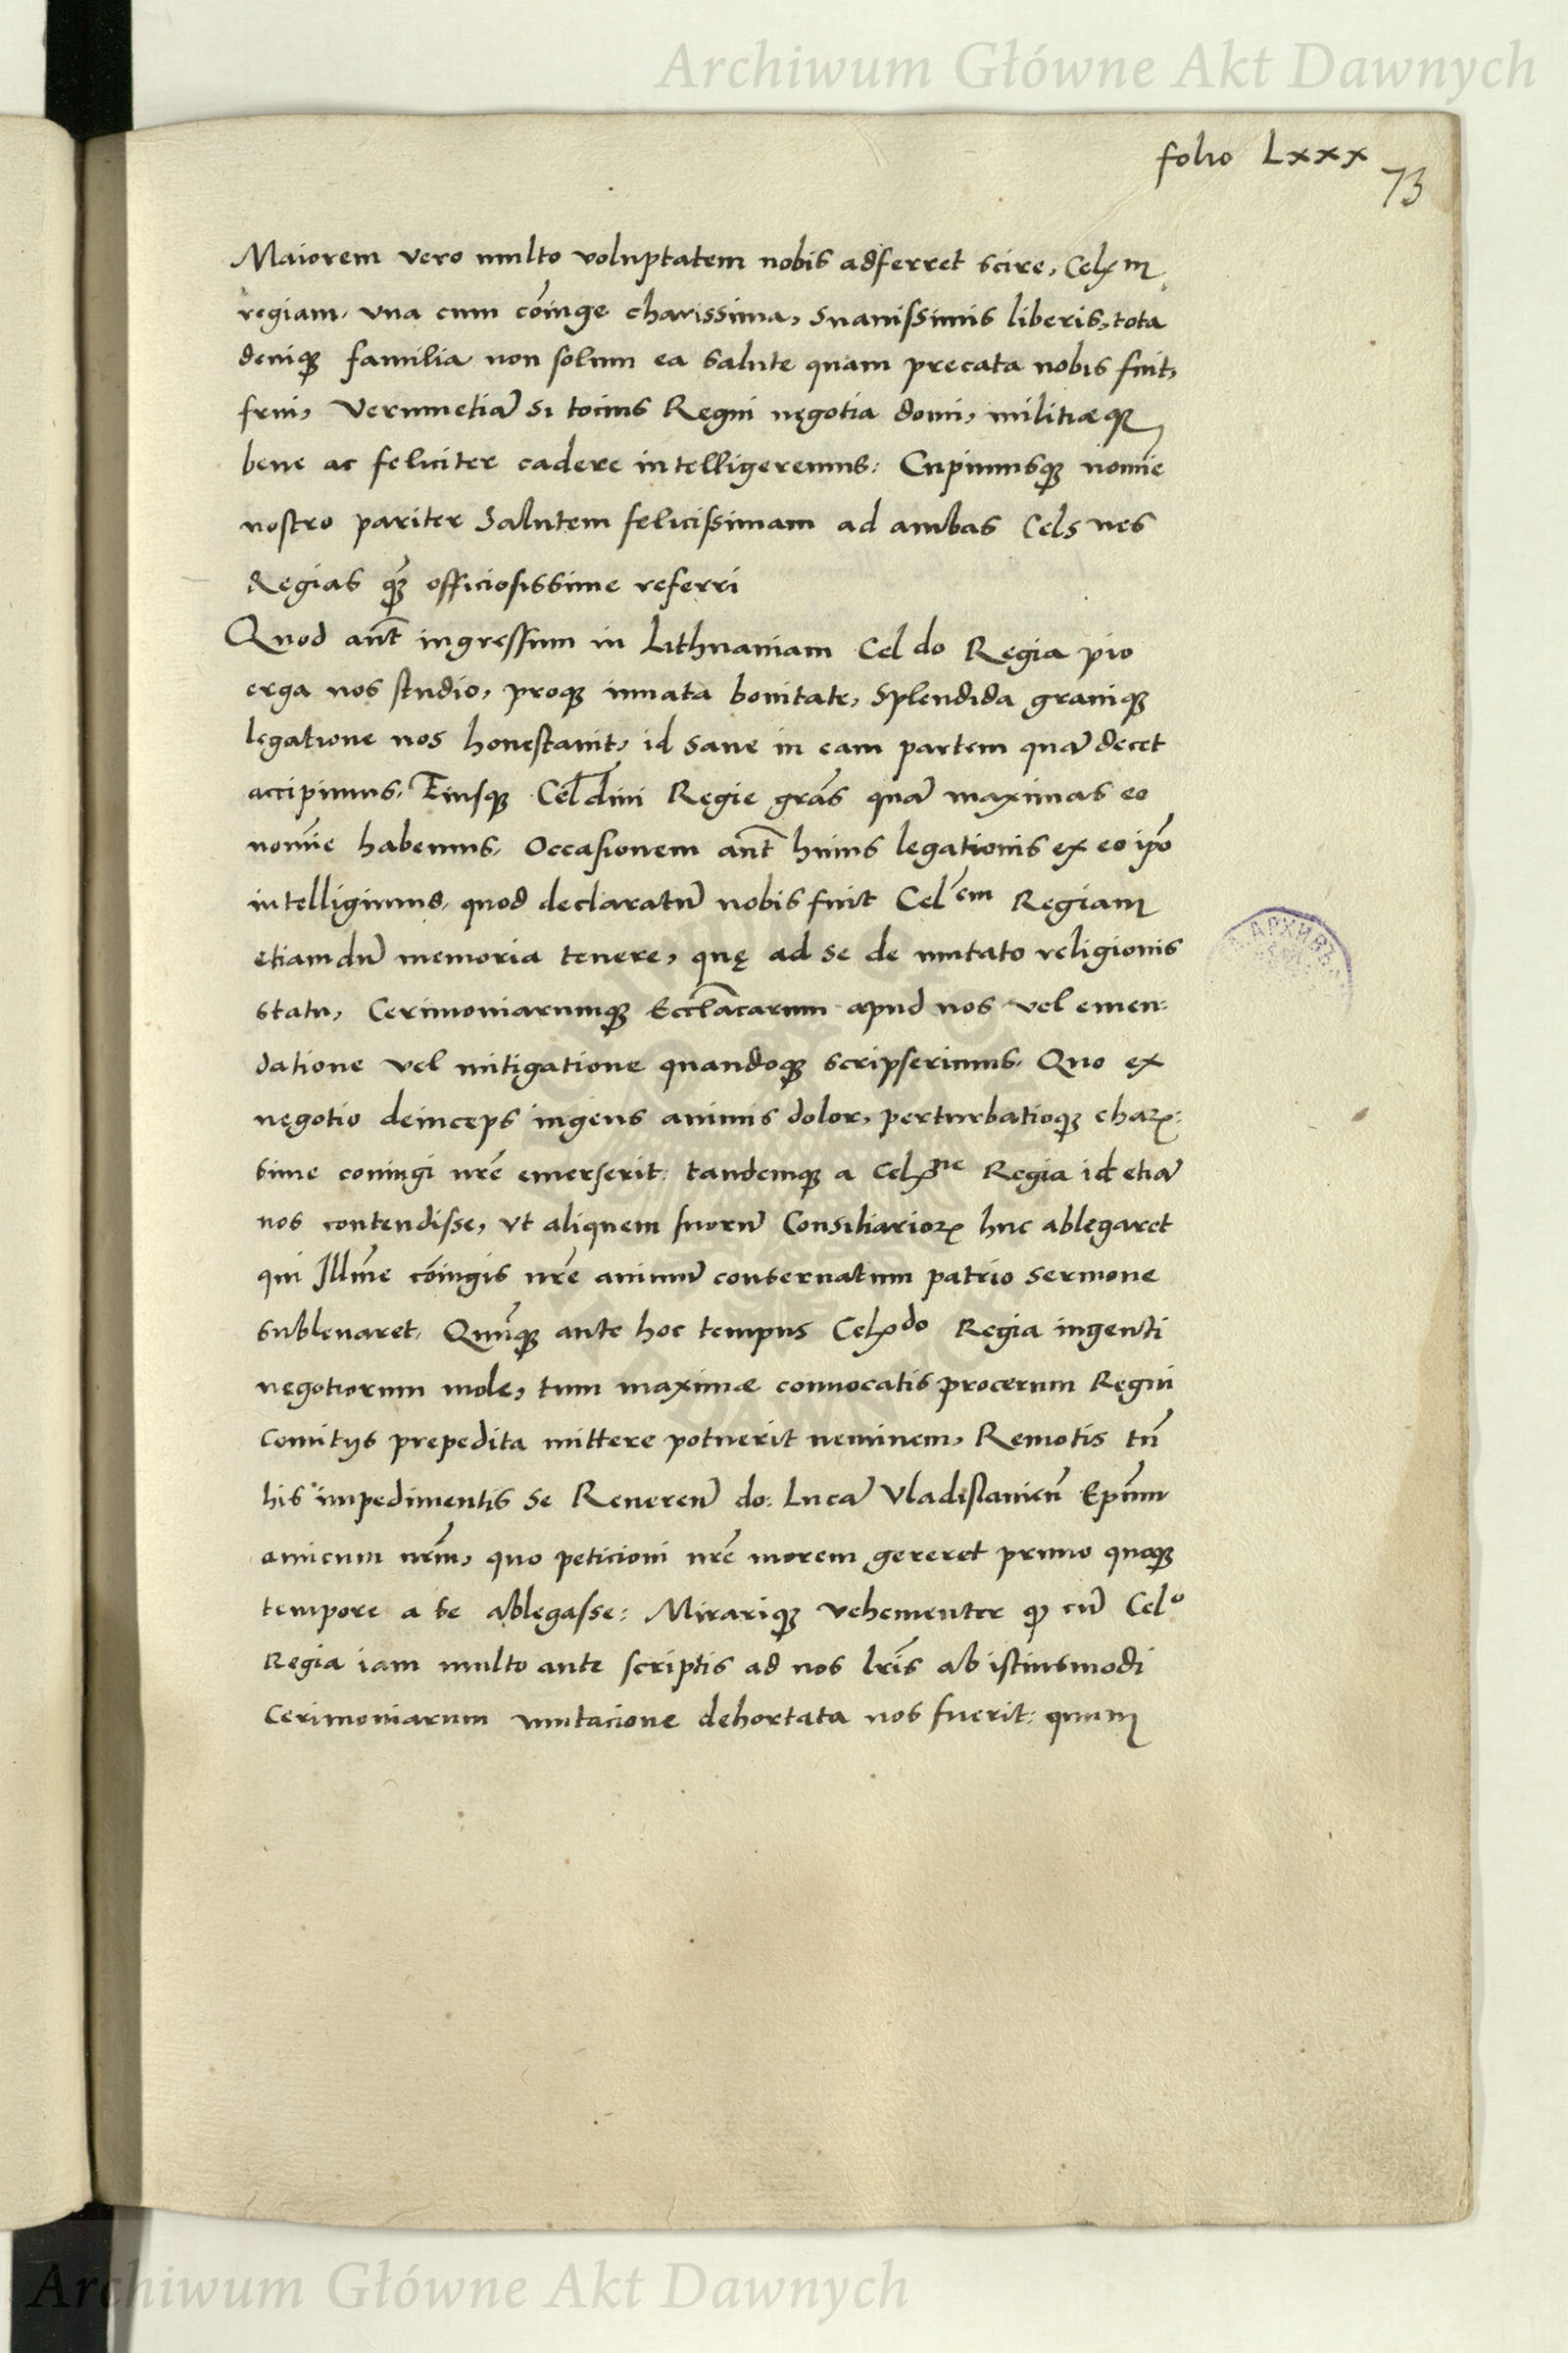 Archiwum Główne Akt Dawnych
folio Lxxx
73
Maiorem vero multo voluptatem nobis adferret scire, Cel m
regiam, vna cum cōiuge charissima, suauissimis liberis, tota
deniqꝫ familia non solum ea salute quam precata nobis fuit,
frui, Verumetiā si tocius Regni nęgotia domi, militiæqꝫ
bene ac feliciter cadere intelligeremus: Cupimusqꝫ nomīe
nostro pariter Salutem felicissimam ad ambas Cels nes
Regias qꝫ officiosissime referri
Quod aūt ingressum in Lithuaniam Cel do Regia pio
erga nos studio, proqꝫ innata bonitate, Splendida grauiqꝫ
lęgatione nos honestauit, id sane in eam partem quā decet
accipimus, Eiusqꝫ Cel̄dini Regie grās quā maximas eo
nomīe habemus, Occasionem aūt huius legationis ex eo ip̄o
intelligimus, quod declaratū nobis fuit Cel em Regiam
etiamdū memoria tenere, quę ad se de mutato religionis
statu, Cerimoniarumqꝫ Eccl̄acarum apud nos vel emen:
datione vel mitigatione quandoqꝫ scripserimus, Quo ex
nęgotio deinceps ingens animis dolor, perturbatioqꝫ charꝭ:
sime coniugi nr̄e emerserit: tandemqꝫ a Cel ne Regia id etiā
nos contendisse, vt aliquem suorū Consiliarioꝝ huc ablegaret
qui Illm̄e cōiugis nr̄e animū consernatum patrio sermone
subleuaret, Quūqꝫ ante hoc tempus Cel do Regia ingenti
negotiorum mole, tum maximæ conuocatis procerum Regni
comitijs prepedita mittere potuerit neminem, Remotis tn̄
his impedimentis se Reuerēn do: Lucā Vladislauieñ Ep̄um
amicum nrm̄, quo peticioni nr̄e morem gereret primo quoqꝫ
tempore a se ablegasse: Mirariqꝫ vehementer qꝫ cū Cel o
Regia iam multo ante scriptis ad nos lr̄is ab istiusmodi
Cerimoniarum mutacione dehortata nos fuerit: quum
АРХИВЪ
Archiwum Główne Akt Dawnych